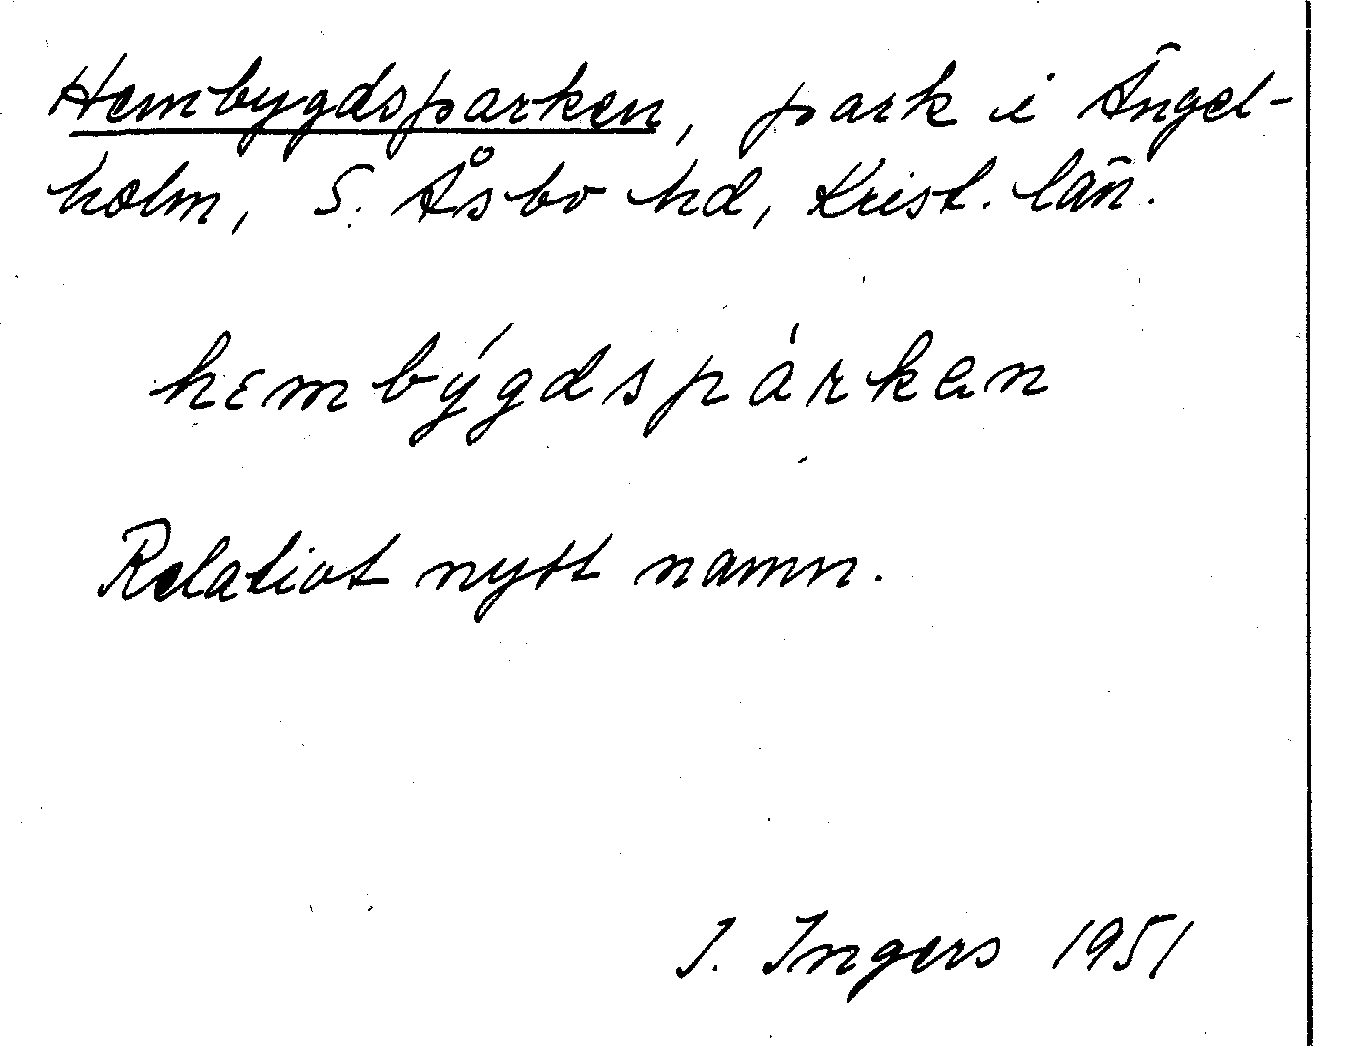 Hembygdsparken, park i Ängel-
holm, S. Åsbo hd, Krist. län.
hɛmbýgdspàrkən
Relativt nytt namn.
I. Ingers 1951